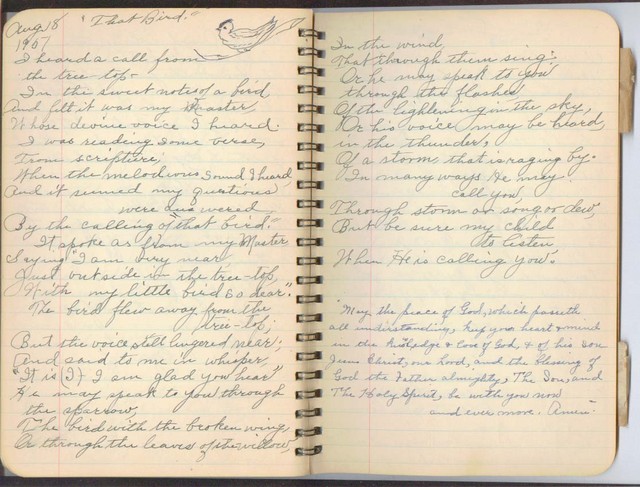 Aug 18 "That Bird."
1957
I heard a call from
the tree-top
In the sweet notes of a bird
And felt it was my Master,
Whose devine voice I heard.
I was reading some verse,
From scripture,
When the melodious sound I heard,
And it seemed my questions
were answered
By the calling of that bird."
It spoke as from my Master
Saying "I am very near,
Just outside in the tree-top,
With my little bird so dear".
The bird flew away from the
tree-top,
But the voice still lingered near;
And said to me in whisper,
"It is I; I am glad you hear"
He may speak to you through
the sparrow,
The bird with the broken wing,
Or through the leaves of the willow,
In the wind
That through them sing;
Or he may speak to you
through the flashes
Of the lightening in the sky,
Or his voice may be heard,
in the thunder,
Of a storm that is raging by.
In many ways He may
call you
Through storm or song or dew,
But be sure my child
to listen
When He is calling you".
"May the peace of God, which passeth
all understanding, keep your heart & mind
in the knowledge & Love of God, & of his Son
Jesus Christ, our Lord, and the blessing of
God the Father almighty, The Son, and
The Holy Spirit, be with you now
and ever more. Amen."